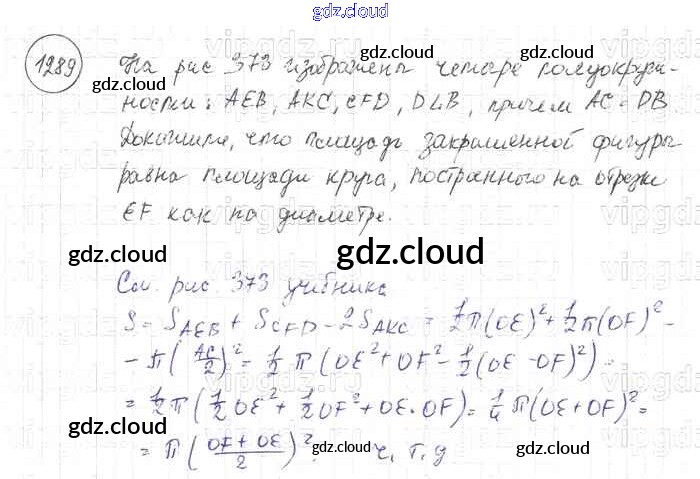 gdz.cloud
1289 На рис 373 изображены четыре полуокруж-
ности: AEB, AKC, CFD, DLB, причем AC = DB
Докажите, что площадь закрашенной фигуры
равна площади круга, построенного на отрезке
EF как на диаметре.
gdz.cloud
См. рис. 373 учебника
S = S_AEB + S_CFD - 2S_AKC = 1/2 π(OE)² + 1/2 π(OF)² -
- π(AC/2)² = 1/2 π(OE² + OF² - 1/2(OE - OF)²) =
= 1/2 π(1/2 OE² + 1/2 OF² + OE·OF) = 1/4 π(OE + OF)² =
= π((OF + OE)/2)². ч. т. д
gdz.cloud
gdz.cloud
gdz.cloud
gdz.cloud
gdz.cloud
gdz.cloud
gdz.cloud
gdz.cloud